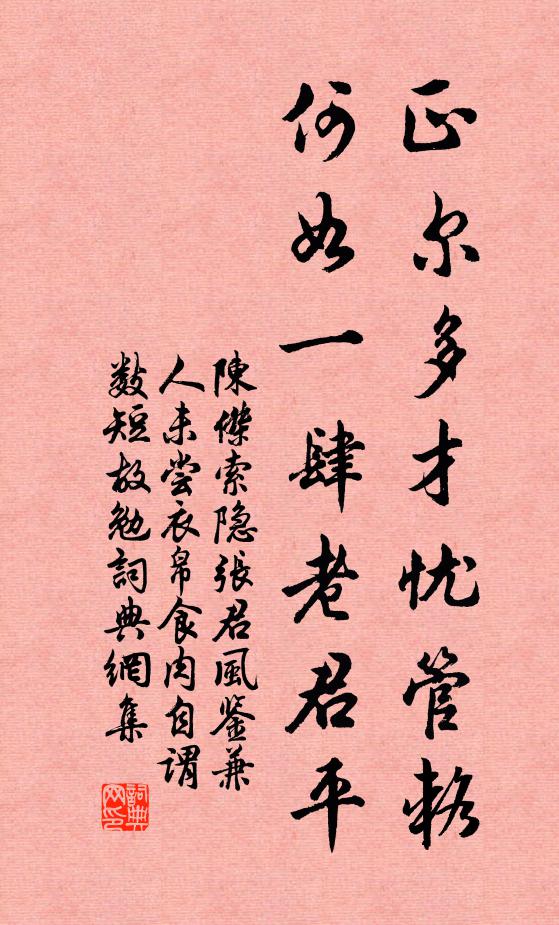 正尔多才忧管輅
何如一肆老君平
陳傑索隐張君風鉴兼
人未尝衣帛食肉自谓
数短故勉詞典網集
詞典
网印